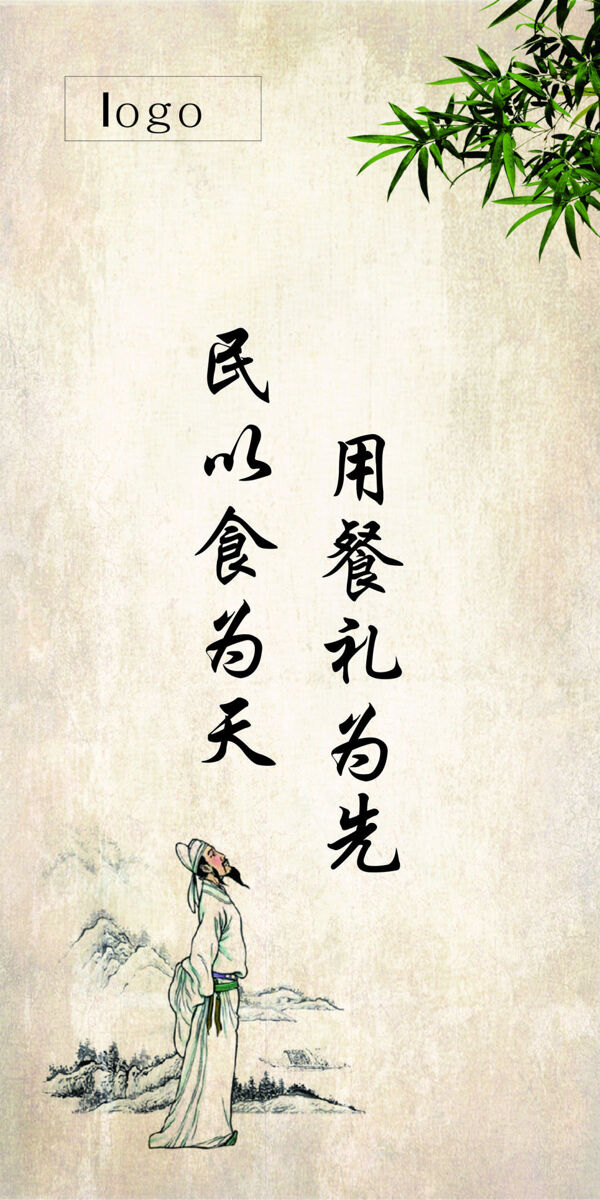 logo
民以食为天
用餐礼为先